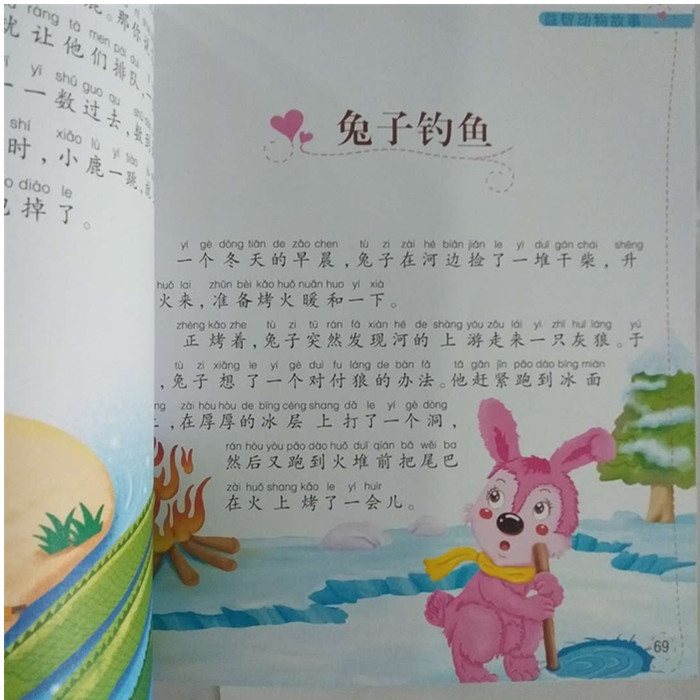 rǎng tā men pái duì
让他们排队,一
yī shǔ guo qu
一一数过去,数到
shí xiǎo lù yí tiào
时,小鹿一跳,就
diào le
掉了。
益智动物故事
兔子钓鱼
yí gè dōng tiān de zǎo chen tù zi zài hé biān jiǎn le yì duī gān chái shēng
一个冬天的早晨,兔子在河边捡了一堆干柴,升
huǒ lai zhǔn bèi kǎo huǒ nuǎn huo yí xià
火来,准备烤火暖和一下。
zhèng kǎo zhe tù zi tū rán fā xiàn hé de shàng yóu zǒu lái yì zhī huī láng yú
正烤着,兔子突然发现河的上游走来一只灰狼。于
tù zi xiǎng le yí gè duì fu láng de bàn fǎ tā gǎn jǐn pǎo dào bīng miàn
,兔子想了一个对付狼的办法。他赶紧跑到冰面
zài hòu hòu de bīng céng shang dǎ le yí gè dòng
,在厚厚的冰层上打了一个洞,
rán hòu yòu pǎo dào huǒ duī qián bǎ wěi ba
然后又跑到火堆前把尾巴
zài huǒ shang kǎo le yí huìr
在火上烤了一会儿。
69